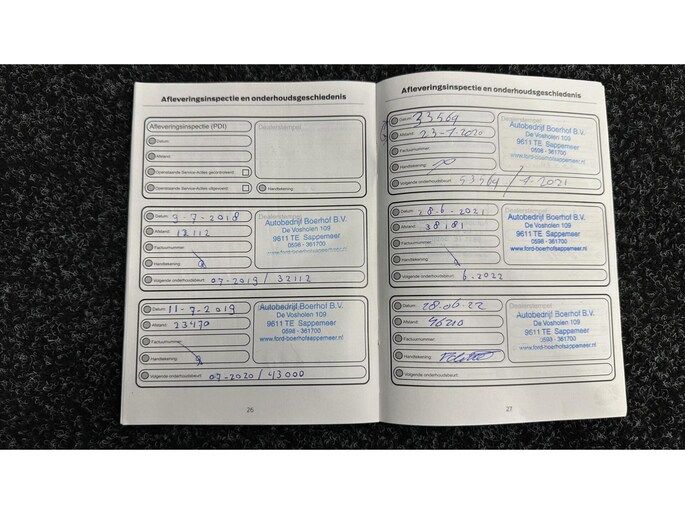 Afleveringsinspectie en onderhoudsgeschiedenis
Afleveringsinspectie (PDI)
Dealerstempel
Datum:
Afstand:
Openstaande Service Acties gecontroleerd:
Openstaande Service Acties uitgevoerd:
Handtekening:
Datum: 9-7-2018
Afstand: 12112
Factuurnummer:
Handtekening:
Volgende onderhoudsbeurt: 07-2019 / 32112
Autobedrijf Boerhof B.V.
De Vosholen 109
9611 TE Sappemeer
0598 - 361700
www.ford-boerhofsappemeer.nl
Datum: 11-7-2019
Afstand: 23470
Factuurnummer:
Handtekening:
Volgende onderhoudsbeurt: 07-2020 / 43000
Autobedrijf Boerhof B.V.
De Vosholen 109
9611 TE Sappemeer
0598 - 361700
www.ford-boerhofsappemeer.nl
26
Afleveringsinspectie en onderhoudsgeschiedenis
Datum: 33569
Afstand: 23-7-2020
Factuurnummer:
Handtekening:
Volgende onderhoudsbeurt: 53569 / 7-2021
Autobedrijf Boerhof B.V.
De Vosholen 109
9611 TE Sappemeer
0598 - 361700
www.ford-boerhofsappemeer.nl
Datum: 28-6-2021
Afstand: 38181
Factuurnummer:
Handtekening:
Volgende onderhoudsbeurt: 6-2022
Autobedrijf Boerhof B.V.
De Vosholen 109
9611 TE Sappemeer
0598 - 361700
www.ford-boerhofsappemeer.nl
Datum: 28-06-22
Afstand: 46210
Factuurnummer:
Handtekening:
Volgende onderhoudsbeurt:
Dealerstempel
Autobedrijf Boerhof B.V.
De Vosholen 109
9611 TE Sappemeer
0598 - 361700
www.ford-boerhofsappemeer.nl
27